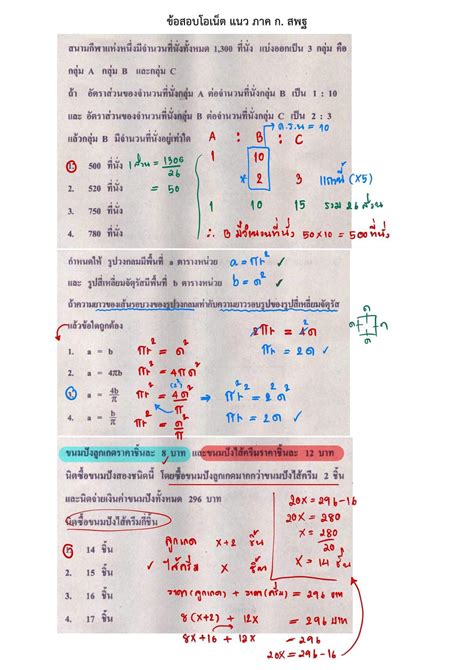 ข้อสอบโอเน็ต แนว ภาค ก. สพฐ
สนามกีฬาแห่งหนึ่งมีจำนวนที่นั่งทั้งหมด 1,300 ที่นั่ง แบ่งออกเป็น 3 กลุ่ม คือ
กลุ่ม A กลุ่ม B และกลุ่ม C
ถ้า อัตราส่วนของจำนวนที่นั่งกลุ่ม A ต่อจำนวนที่นั่งกลุ่ม B เป็น 1 : 10
และ อัตราส่วนของจำนวนที่นั่งกลุ่ม B ต่อจำนวนที่นั่งกลุ่ม C เป็น 2 : 3
→ ค.ร.น = 10
แล้วกลุ่ม B มีจำนวนที่นั่งอยู่เท่าใด
A : B : C
1 10
1. 500 ที่นั่ง 1 ส่วน = 1300/26
× 2 3 แถวนี้ (×5)
2. 520 ที่นั่ง = 50
3. 750 ที่นั่ง
1 10 15 รวม 26 ส่วน
4. 780 ที่นั่ง
∴ B มีจำนวนที่นั่ง 50×10 = 500 ที่นั่ง
กำหนดให้ รูปวงกลมมีพื้นที่ a ตารางหน่วย a = πr² ✓
และ รูปสี่เหลี่ยมจัตุรัสมีพื้นที่ b ตารางหน่วย b = ด² ✓
ถ้าความยาวของเส้นรอบวงของรูปวงกลมเท่ากับความยาวรอบรูปของรูปสี่เหลี่ยมจัตุรัส
แล้วข้อใดถูกต้อง
2πr = 4ด
ด ด ด ด
1. a = b πr² = ด²
πr = 2ด ✓
2. a = 4πb πr² = 4πด²
3. a = 4b/π πr² = 4ด²/π ⇒ π²r² = 2²ด²
4. a = b/π πr² = ด²/π
πr = 2ด ✓
ขนมปังลูกเกดราคาชิ้นละ 8 บาท และขนมปังไส้ครีมราคาชิ้นละ 12 บาท
นิตซื้อขนมปังสองชนิดนี้ โดยซื้อขนมปังลูกเกดมากกว่าขนมปังไส้ครีม 2 ชิ้น
และนิตจ่ายเงินค่าขนมปังทั้งหมด 296 บาท
นิตซื้อขนมปังไส้ครีมกี่ชิ้น
20x = 296-16
20x = 280
x = 280/20
x = 14 ชิ้น
1. 14 ชิ้น ลูกเกด x+2 ชิ้น
2. 15 ชิ้น ✓ ไส้ครีม x ชิ้น
3. 16 ชิ้น ราคา(ลูกเกด) + ราคา(ครีม) = 296 บาท
4. 17 ชิ้น 8(x+2) + 12x = 296 บาท
8x+16 + 12x = 296
20x = 296-16